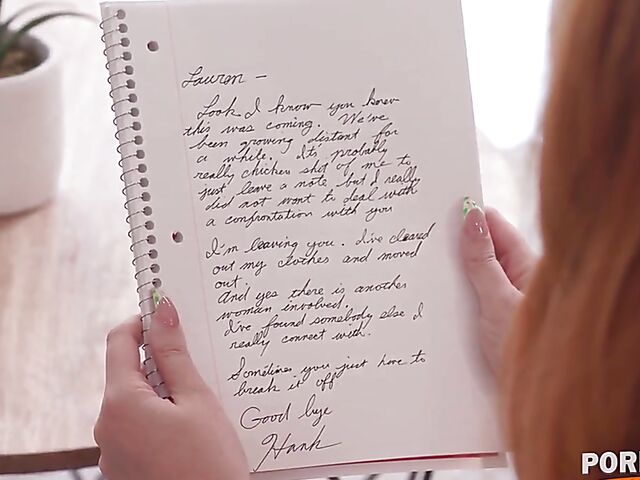 Lauren —
Look I know you knew
this was coming. We've
been growing distant for
a while. It's probably
really chicken shot of me to
just leave a note but I really
did not wont to deal with
a confrontation with you
I'm leaving you. I've cleared
out my clothes and moved
out.
And yes there is another
woman involved.
I've found somebody else I
really connect with.
Sometimes you just have to
break it off
Good bye
Hank
PORN